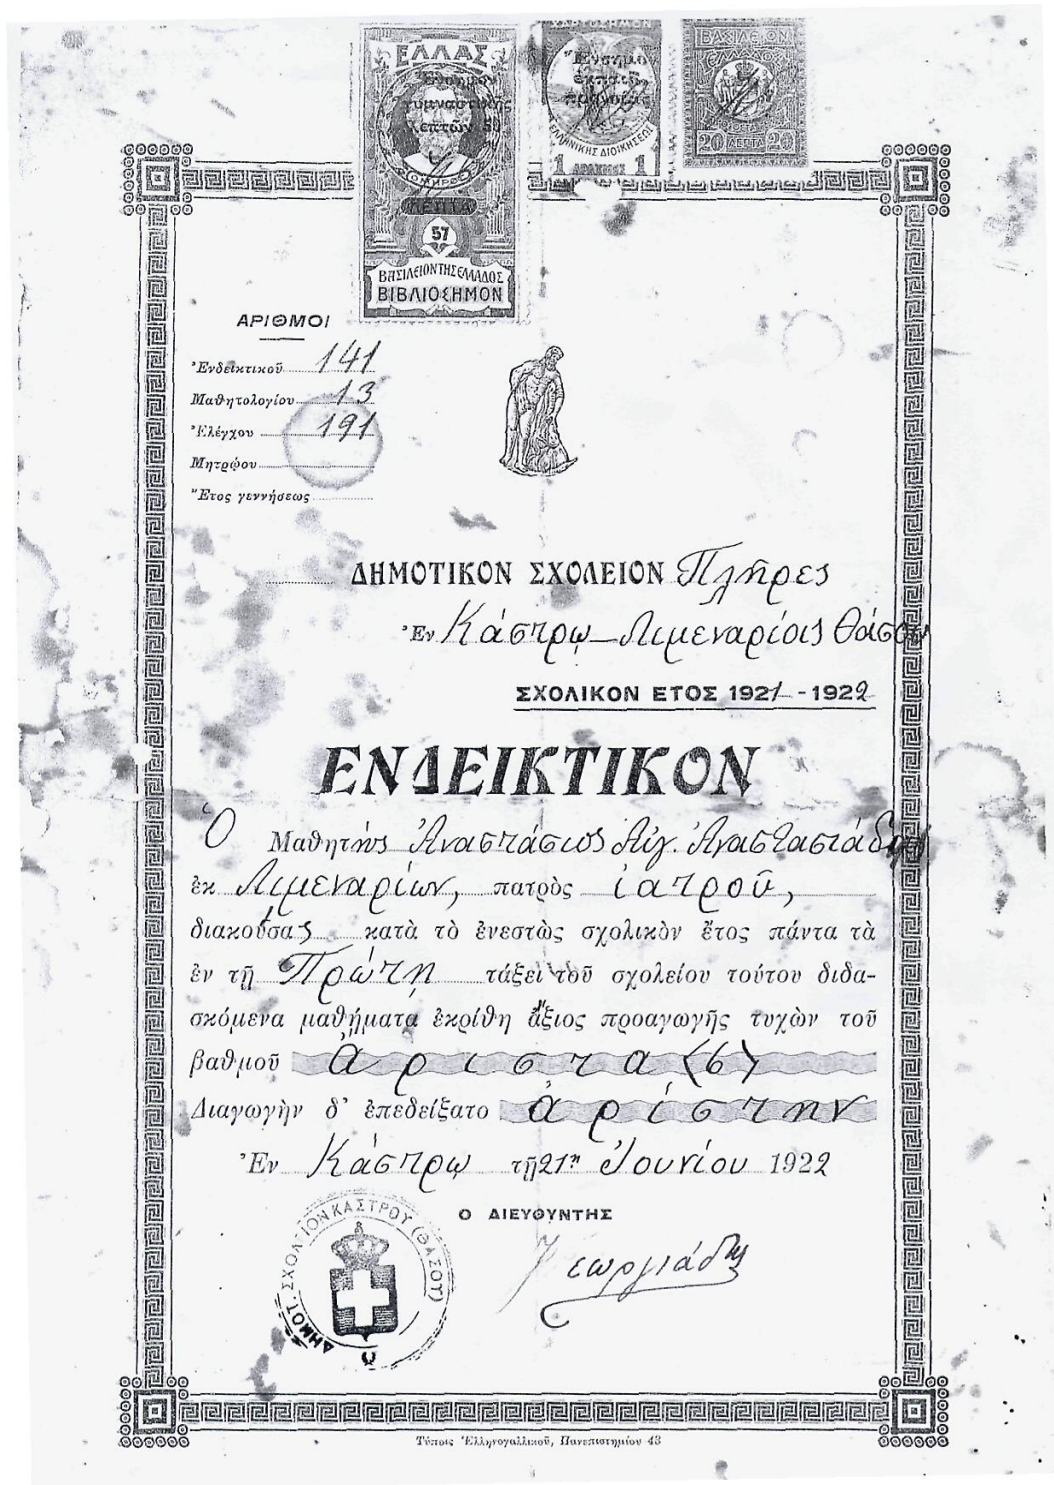 ΕΛΛΑΣ
Ἔνσημον
γυμναστικῆς
λεπτῶν 50
ΟΜΗΡΟΣ
ΛΕΠΤΑ
57
ΒΑΣΙΛΕΙΟΝ ΤΗΣ ΕΛΛΑΔΟΣ
ΒΙΒΛΙΟΣΗΜΟΝ
ΧΑΡΤΟΣΗΜΟΝ
Ἔνσημο
ἐκπαιδ.
προνοίας
ΕΛΛΗΝΙΚΗΣ ΔΙΟΙΚΗΣΕΩΣ
1 ΔΡΑΧΜΗΣ 1
ΒΑΣΙΛΕΙΟΝ
ΕΛΛΑΔΟΣ
20 ΛΕΠΤΑ 20
ΑΡΙΘΜΟΙ
Ἐνδεικτικοῦ 141
Μαθητολογίου 13
Ἐλέγχου 191
Μητρῴου
Ἔτος γεννήσεως
ΔΗΜΟΤΙΚΟΝ ΣΧΟΛΕΙΟΝ Πλῆρες
Ἐν Κάστρῳ – Λιμεναρίοις Θάσου
ΣΧΟΛΙΚΟΝ ΕΤΟΣ 1921 - 1922
ΕΝΔΕΙΚΤΙΚΟΝ
Ὁ Μαθητὴς Ἀναστάσιος Αὐγ. Ἀναστασιάδης
ἐκ Λιμεναρίων, πατρὸς ἰατροῦ,
διακούσας κατὰ τὸ ἐνεστὼς σχολικὸν ἔτος πάντα τὰ
ἐν τῇ Πρώτῃ τάξει τοῦ σχολείου τούτου διδα-
σκόμενα μαθήματα ἐκρίθη ἄξιος προαγωγῆς τυχὼν τοῦ
βαθμοῦ ἄριστα (6)
Διαγωγὴν δ' ἐπεδείξατο ἀρίστην
Ἐν Κάστρῳ τῇ 21ῃ Ἰουνίου 1922
Ο ΔΙΕΥΘΥΝΤΗΣ
Γεωργιάδης
ΔΗΜΟΤ. ΣΧΟΛΕΙΟΝ ΚΑΣΤΡΟΥ (ΘΑΣΟΥ)
Τύποις Ἑλληνογαλλικοῦ, Πανεπιστημίου 43